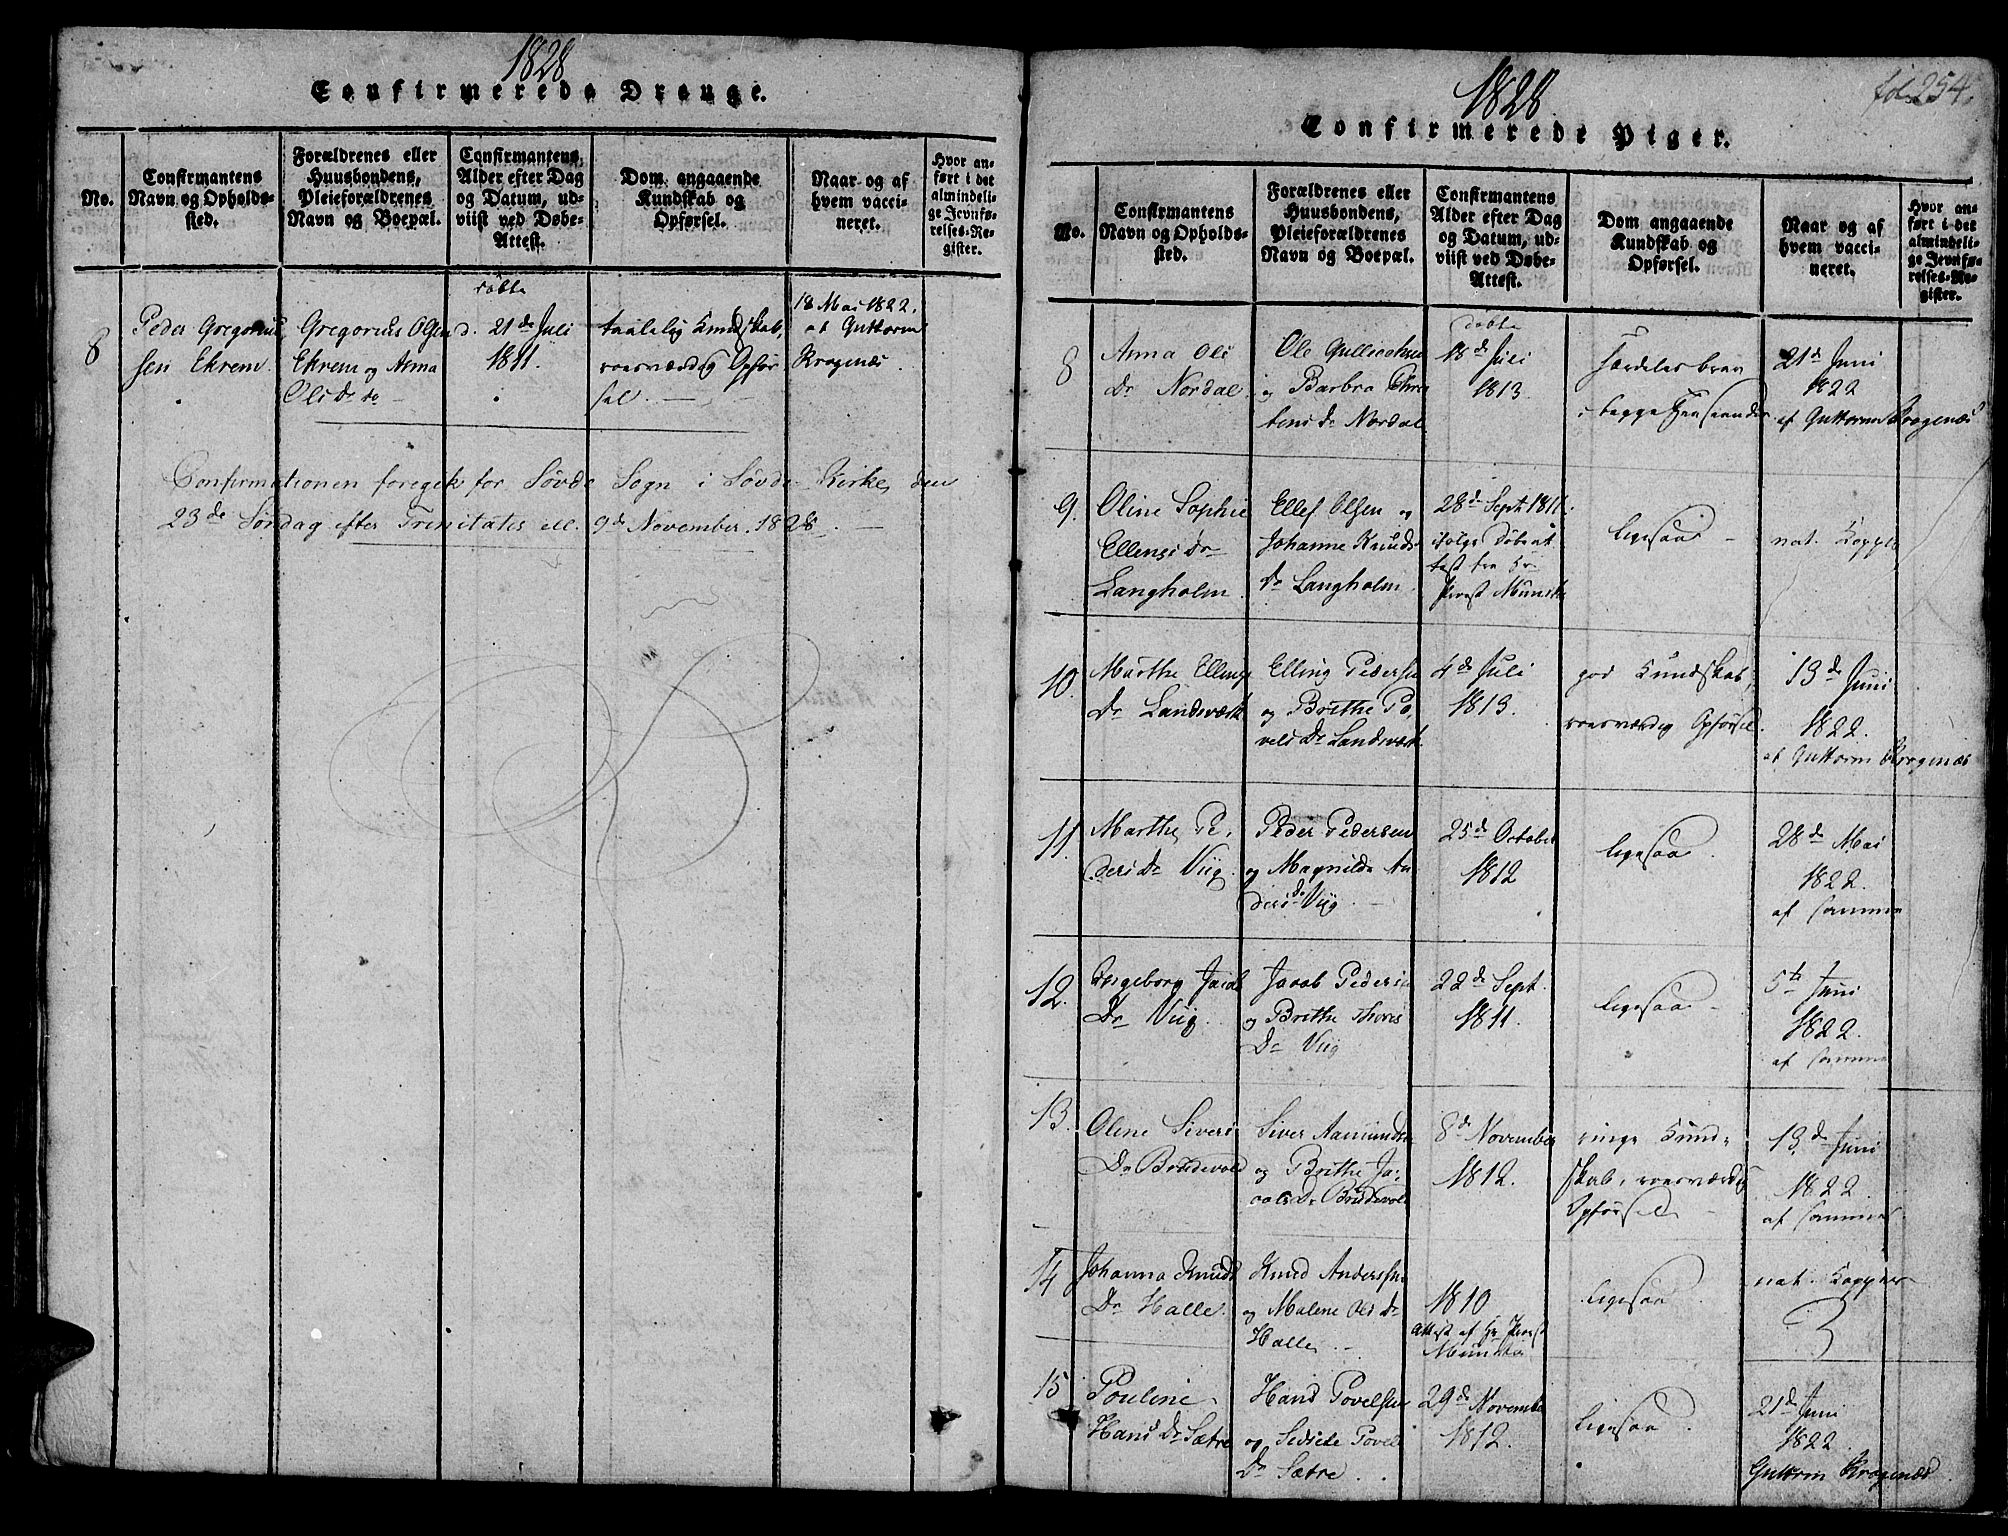 1828
Confirmerede Drenge.
No.
Confirmantens
Navn og Opholds-
sted.
Forældrenes eller
Huusbondens,
Pleieforældrenes
Navn og Boepæl.
Confirmantens
Alder efter Dag
og Datum, ud-
viist ved Døbe-
Attest.
Dom angaaende
Kundskab og
Opførsel.
Naar og af
hvem vacci-
neret.
Hvor an-
ført i det
almindeli-
ge Jevnfø-
relses-Re-
gister.
8
Peder Gregorius
sen Ekrem.
Gregorius Olsen
Ekrem og Anna
Olsdr do
døbte
d. 21de Juli
1811.
taalelig Kundskab,
roesværdig Opfør
sel.
18 Mai 1822.
af Guttorm
Kragenæs
Confirmationen foregik for Søvde Sogn i Søvde Kirke, den
23de Søndag efter Trinitatis ell. 9de November 1828.
1828
fol. 254.
Confirmerede Piger.
No.
Confirmantens
Navn og Opholds-
sted.
Forældrenes eller
Huusbondens,
Pleieforældrenes
Navn og Boepæl.
Confirmantens
Alder efter Dag
og Datum, ud-
viist ved Døbe-
Attest.
Dom angaaende
Kundskab og
Opførsel.
Naar og af
hvem vacci-
neret.
Hvor an-
ført i det
almindeli-
ge Jevnfø-
relses-Re-
gister.
8
Anna Ols
Dr Nordal.
Ole
og Barbra
Dr Nordal
døbte
18d Juli
1813.
i begge Henseender
21d Juni
1822
af Guttorm Kragenæs
9.
Oline Sophie
Ellens Dr
Langholm.
Ellef Olsen og
Johanne Knuds
Dr Langholm.
28d Sept 1811.
ifølge Døbeat
test fra Hr
Provst Munste
ligesaa
nat. Kopper
10.
Marthe Ellings
Dr Landsværk
Elling Pedersen
og Brithe Po,
vels Dr Landsværk
4d Juli
1813.
god Kundskab,
roesværdig Opførsel.
13d Juni
1822.
af Guttorm Kragenæs
11.
Marthe Pe,
ders Dr Viig.
Peder Pedersen
og Magnilda An
ders Dr Viig.
25d October
1812
ligesaa.
28d Mai
1822.
af samme
12.
Ingeborg Jacobs
Dr Viig.
Jacob Pedersen
og Brithe Thores
Dr Viig
22d Sept.
1811.
ligesaa
5te Juni
1822
af samme
13.
Olene Sivers
Dr Brudevold
Siver Aamunds
og Brithe Ja,
cobs Dr Brudevold
8d November
1812.
ringe Kund-
skab, roesværdig
Opførsel
13d Juni
1822
af samme
14
Johanna Knuds
Dr Halle.
Knud Andersen
og Malene Ols Dr
Halle.
1810
Attest af Hr Provst
Munste
ligesaa.
nat. Kopper
15
Pouline
Hans Dr Sætre
Hans Povelsen
og Sidsele Povels
Dr Sætre.
29d November
1812.
ligesaa.
21d Juni
1822.
Guttorm Kragenæs